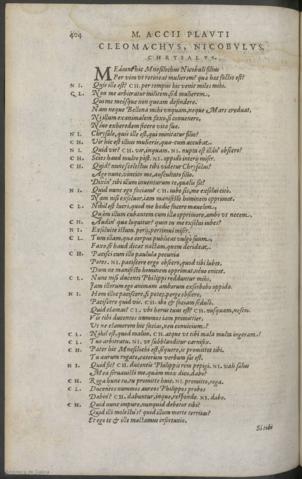 404 M. ACCII PLAVTI
CLEOMACHVS, NICOBVLVS,
CHRYSALVS.
MEdonthic Mnesilochus Nicobuli filius
Per vim vt retineat mulierem? quæ hæc factio est?
NI. Quis ille est? CH. per tempus hic venit miles mihi.
CL. Non me arbitratur militem, sed mulierem,
Qui me meosque non queam defendere.
Nam neque Bellona mihi vnquam, neque Mars creduat,
Ni illum exanimalem faxo, si conuenero,
Niue exheredem fecero vitæ suæ.
NI. Chrysale, quis ille est, qui minitatur filio?
CH. Vir hic est illius mulieris, quacum accubat.
NI. Quid vir? CH. vir, inquam. NI. nupta est illa? obsecro?
CH. Scies haud multo post. NI. oppidò interij miser.
CH. Quid? nunc scelestus tibi videtur Chrysalus?
Age nunc, vincito me, auscultato filio.
Dixin' tibi illum inuenturum te, qualis sit?
NI. Quid nunc ego faciam? CH. iube sis, me exsolui citò.
Nam nisi exsoluor, iam manifestò hominem opprimet.
CL. Nihil est lucri, quod me hodie facere mauelim,
Quàm illum cubantem cum illa opprimere, ambo vt necem.
CH. Audin' quæ loquitur? quin tu me exsolui iubes?
NI. Exsoluite istum. perij, pertimui miser.
CL. Tum illam, quæ corpus publicat vulgò suum,
Faxo, se haud dicat nactam, quem derideat.
CH. Pacisci cum illo paulula pecunia
Potes. NI. paciscere ergo obsecro, quod tibi lubet,
Dum ne manifestò hominem opprimat, néue enicet.
CL. Nunc nisi ducenti Philippi redduntur mihi,
Iam illorum ego animam amborum exsorbebo oppidò.
NI. Hem illoc paciscere, si potes, perge obsecro,
Paciscere quid vis. CH. ibo & faciam sedulò.
Quid clamas? CL. vbi herus tuus est? CH. nusquam, nescio.
Vis tibi ducentos nummos iam promittier,
Vt ne clamorem hîc facias, neu conuicium?
CL. Nihil est, quod malim. CH. atque vt tibi mala multa ingeram?
CL. Tuo arbitratu. NI. vt subblanditur carnifex.
CH. Pater hic Mnesilochi est, sequere, is promittet tibi.
Tu aurum rogato, cæterum verbum sat est.
NI. Quid fit? CH. ducentis Philippis rem pepigi. NI. vah salus
Mea seruauisti me. quàm mox dico, dabo?
CH. Roga hunc tu, tu promitte huic. NI. promitto, roga.
CL. Ducentos nummos aureos Philippos probos
Dabin'? CH. dabuntur, inque, responde. NI. dabo.
CH. Quid nunc impure, nunquid debetur tibi?
Quid illi molestu's? quid illum morte territas?
Et ego te & ille mactamus infortunio.
Si tibi